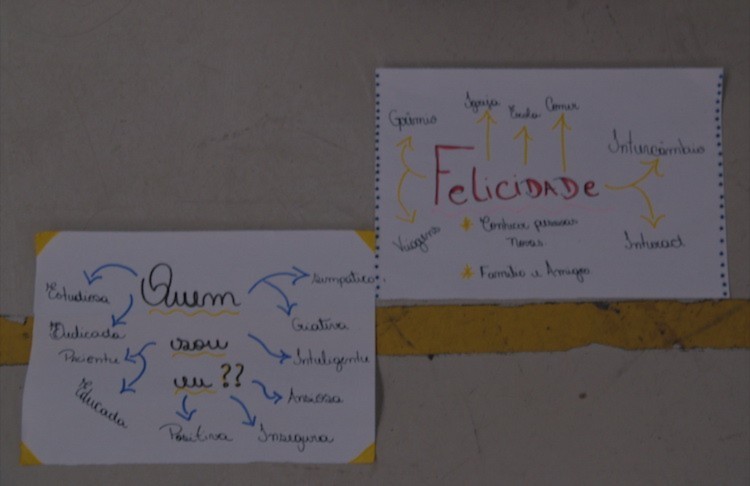 Grêmio
Igreja
Escola
Comer
Intercâmbio
FeliciDADe
Viagens
Interact
* Conhecer pessoas
novas
* Família e Amigos
Quem
sou
eu ??
Estudiosa
Dedicada
Paciente
Educada
Positiva
Insegura
Ansiosa
Inteligente
Criativa
simpática